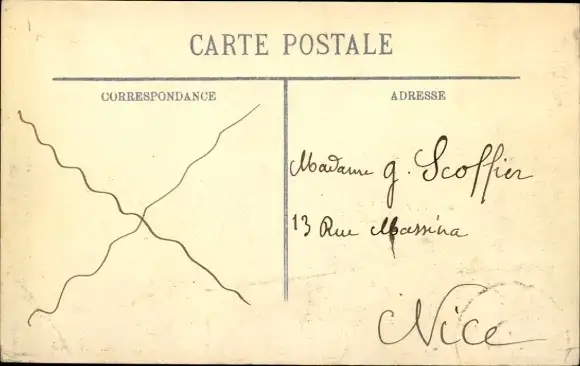 CARTE POSTALE
CORRESPONDANCE
ADRESSE
Madame G. Scoffier
13 Rue Masséna
Nice